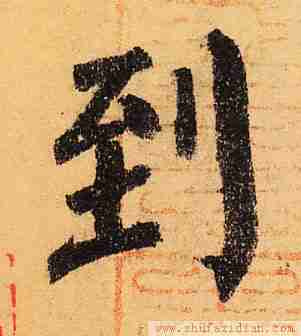 到
www.shufazidian.com